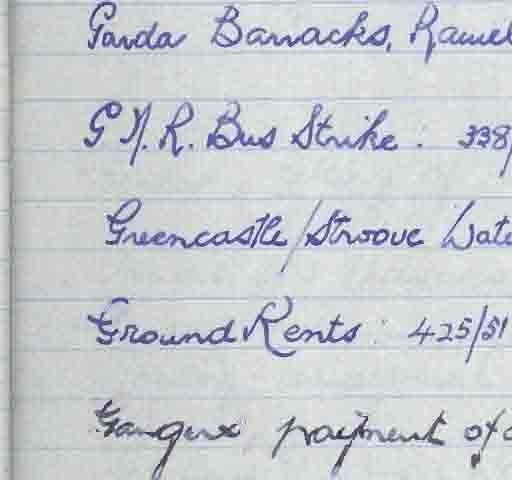 Garda Barracks, Ramel
G N. R. Bus Strike : 338/
Greencastle/Stroove Wate
Ground Rents : 425/51
Gangers payment of